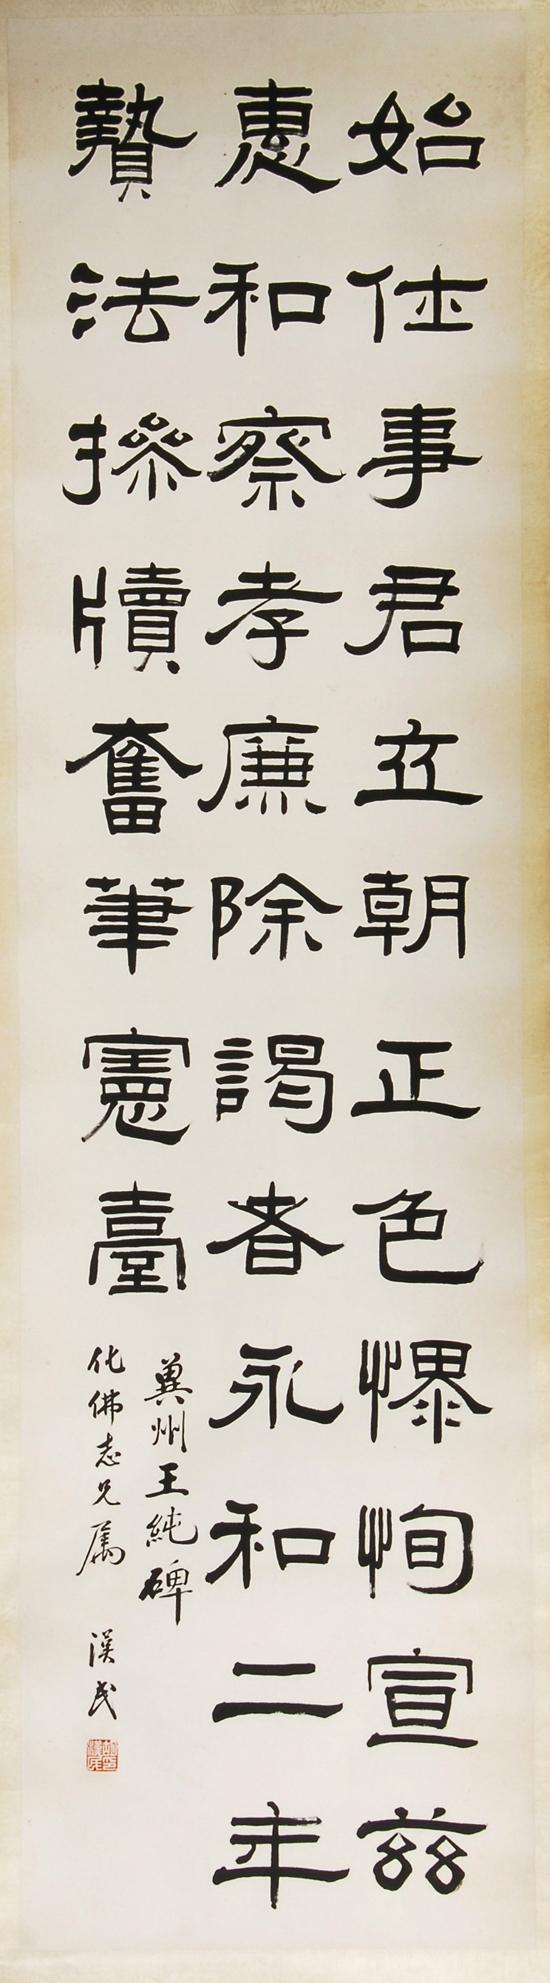 始仕事君立朝正色慓恂宣茲
惠和察孝廉除謁者永和二年
贄法操牘奮筆憲臺
冀州王純碑
化佛志兄属
漢民